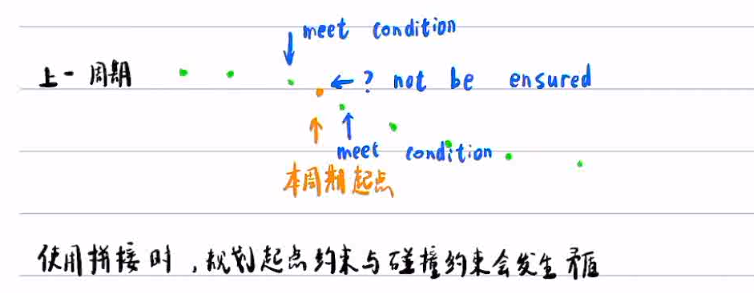 meet condition
上一周期
← ? not be ensured
meet condition
本周期起点
使用拼接时,规划起点约束与碰撞约束会发生矛盾